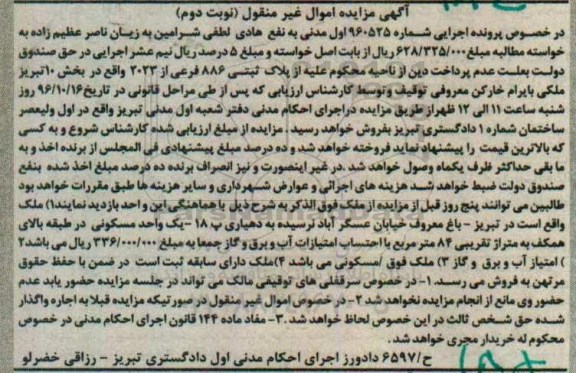 آگهی مزایده اموال غیر منقول (نوبت دوم)
در خصوص پرونده اجرایی شماره ۹۶۰۵۲۵ اول مدنی به نفع هادی لطفی شرامین به زیان ناصر عظیم زاده به
خواسته مطالبه مبلغ ۶۲۸/۳۲۵/۰۰۰ ریال از بابت اصل خواسته و مبلغ ۵ درصد ریال نیم عشر اجرایی در حق صندوق
دولت بعلت عدم پرداخت دین از ناحیه محکوم علیه از پلاک ثبتی ۸۸۶ فرعی از ۲۰۲۳ واقع در بخش ۱۰ تبریز
ملکی بایرام خارکن معروفی توقیف و توسط کارشناس ارزیابی که پس از طی مراحل قانونی در تاریخ ۹۶/۱۰/۱۶ روز
شنبه ساعت ۱۱ الی ۱۲ ظهر از طریق مزایده در اجرای احکام مدنی دفتر شعبه اول مدنی تبریز واقع در اول ولیعصر
ساختمان شماره ۱ دادگستری تبریز بفروش خواهد رسید. مزایده از مبلغ ارزیابی شده کارشناس شروع و به کسی
که بالاترین قیمت را پیشنهاد نماید فروخته خواهد شد و ده درصد مبلغ پیشنهادی فی المجلس از برنده اخذ و به
ما بقی حداکثر ظرف یکماه وصول خواهد شد. در غیر اینصورت و نیز انصراف برنده ده درصد مبلغ اخذ شده بنفع
صندوق دولت ضبط خواهد شد هزینه های اجرائی و عوارض شهرداری و سایر هزینه ها طبق مقررات خواهد بود
طالبین می توانند پنج روز قبل از مزایده از ملک فوق الذکر به شرح ذیل با هماهنگی این واحد بازدید نمایند۱) ملک
واقع است در تبریز - باغ معروف خیابان عسگر آباد نرسیده به دهیاری پ ۱۸ -یک واحد مسکونی در طبقه بالای
همکف به متراژ تقریبی ۸۴ متر مربع با احتساب امتیازات آب و برق و گاز جمعا به مبلغ ۳۳۶/۰۰۰/۰۰۰ ریال می باشد۲
) امتیاز آب و برق و گاز ۳) ملک فوق /مسکونی می باشد ۴)ملک دارای سابقه ثبت است در ضمن با حفظ حقوق
مرتهن به فروش می رسد. ۱- در خصوص سرقفلی های توقیفی مالک می تواند در جلسه مزایده حضور یابد عدم
حضور وی مانع از انجام مزایده نخواهد شد ۲- در خصوص اموال غیر منقول در صورتیکه مزایده قبلا به اجاره واگذار
شده حق شخص ثالث در این خصوص لحاظ خواهد شد. ۳- مفاد ماده ۱۴۴ قانون اجرای احکام مدنی در خصوص
محکوم له خریدار مجری خواهد شد.
ح/۶۵۹۷ دادورز اجرای احکام مدنی اول دادگستری تبریز - رزاقی خضرلو